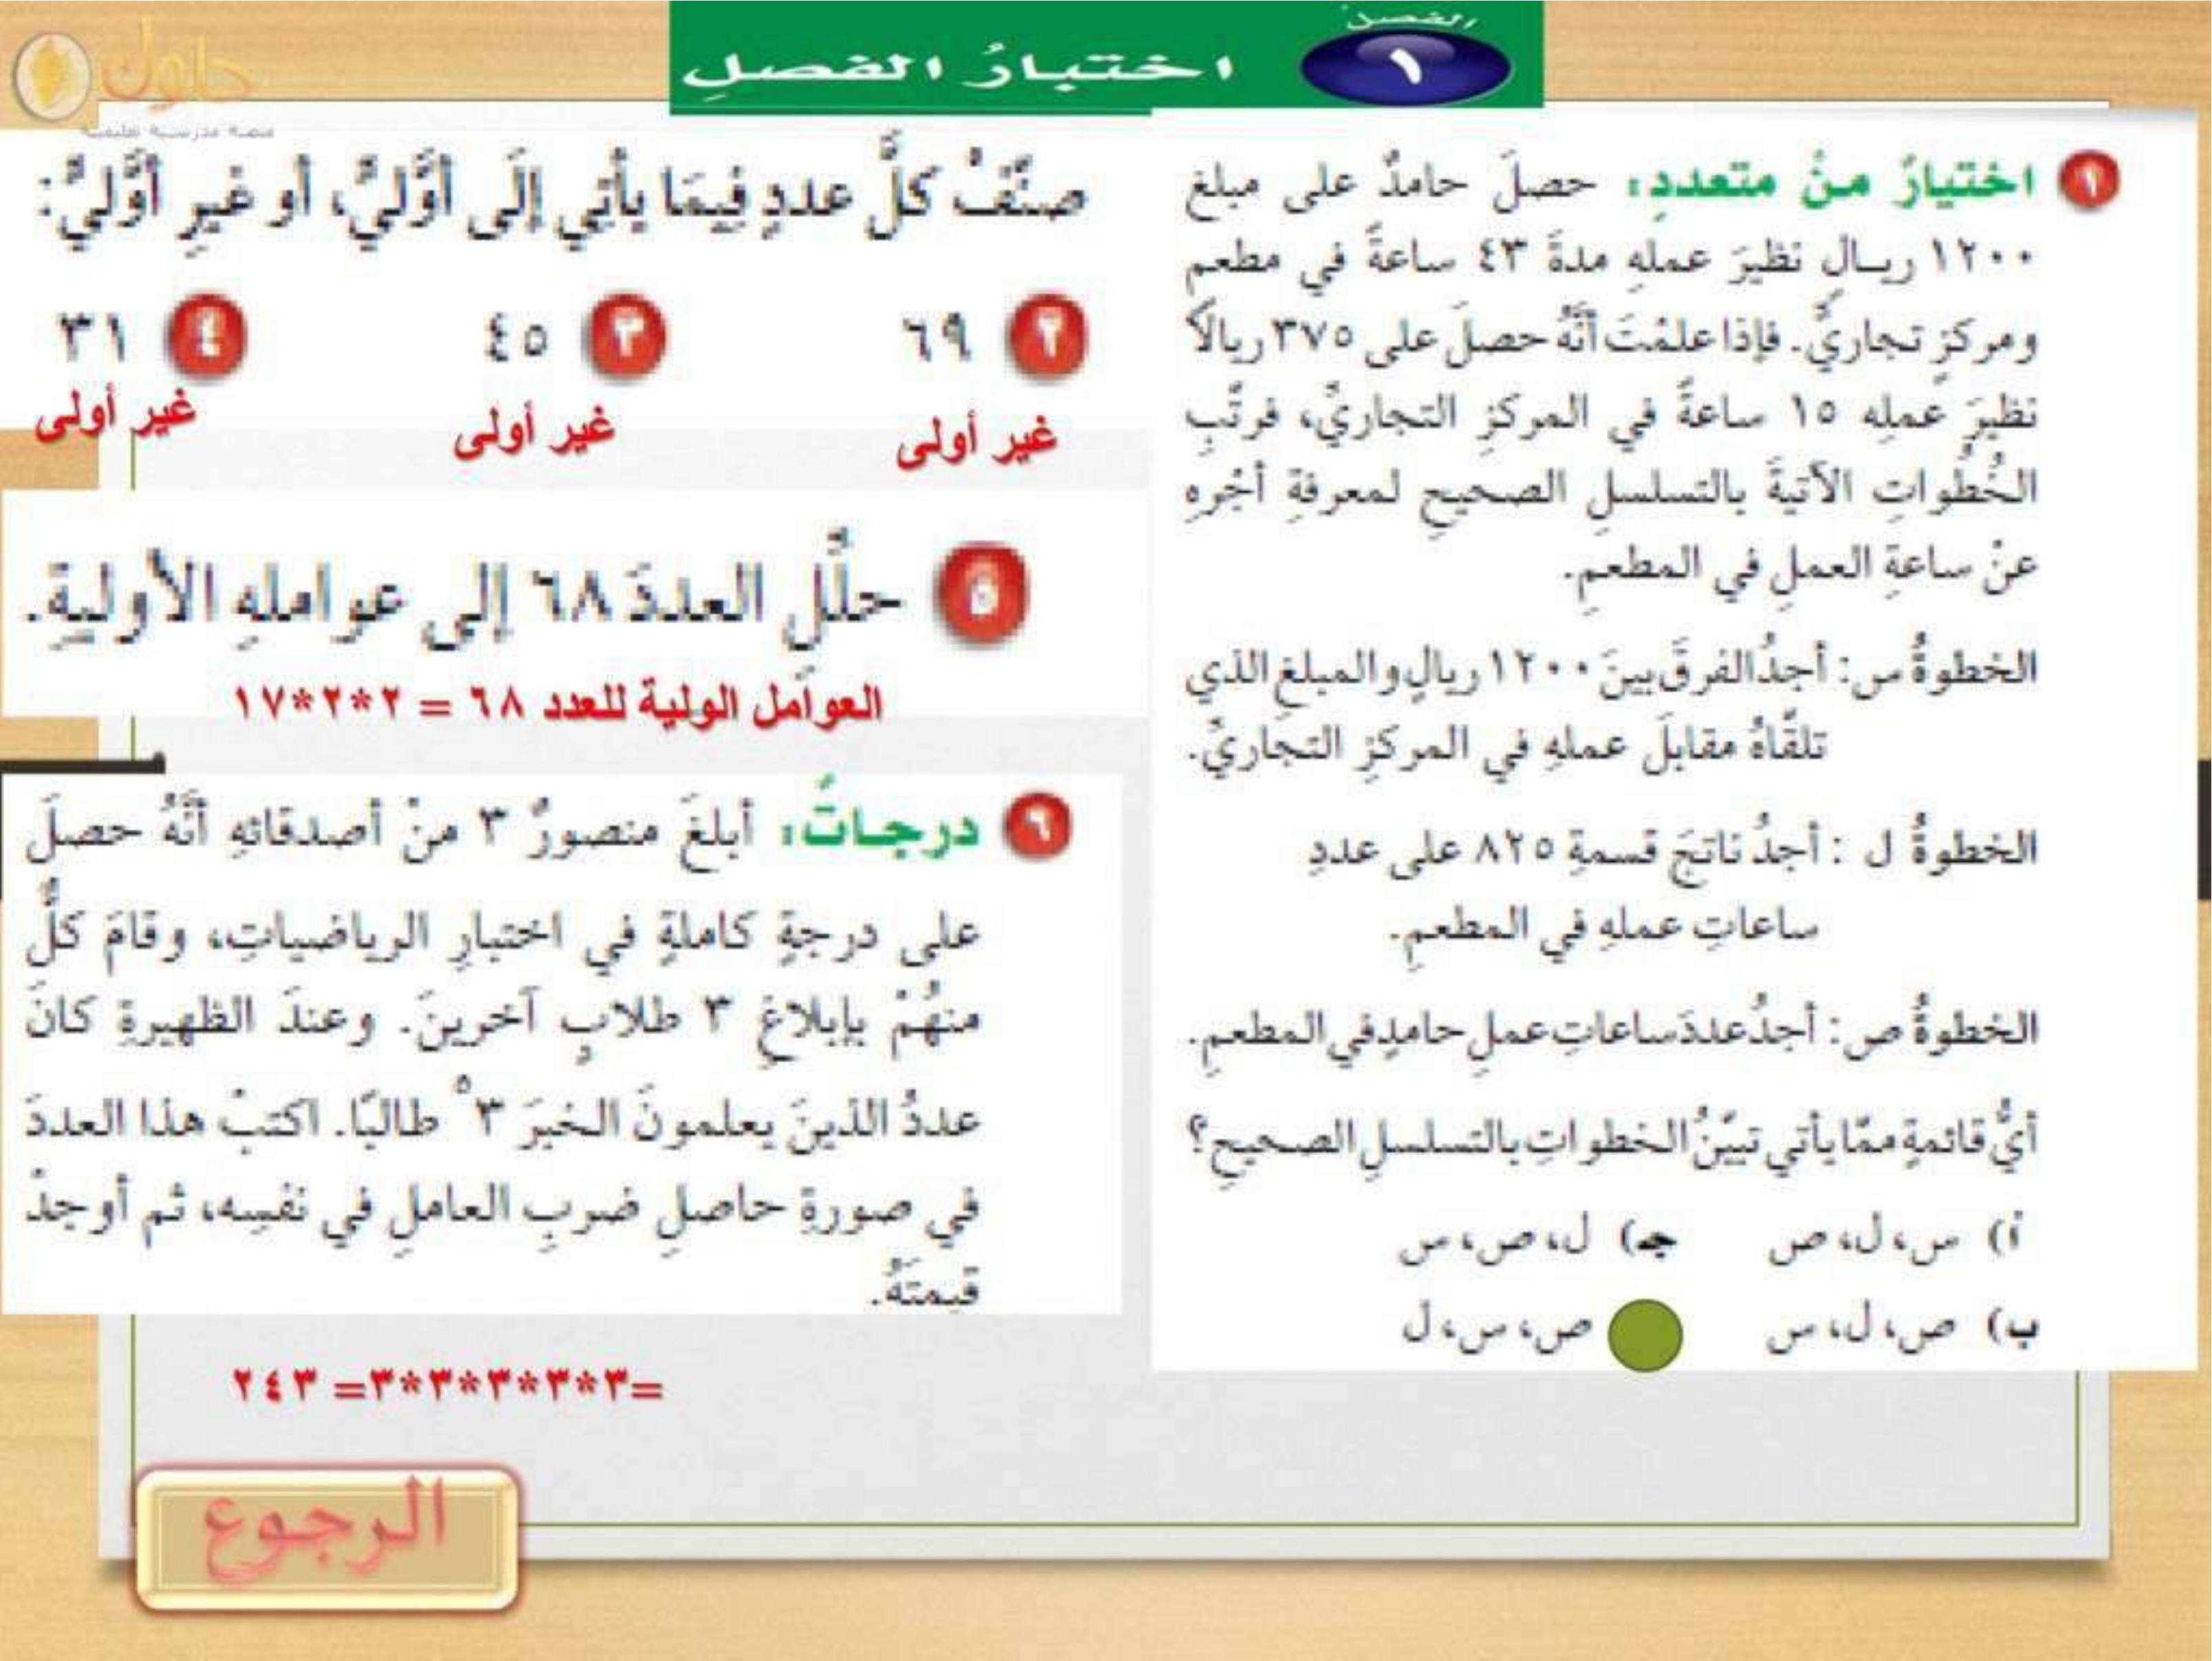 الفصل
١
اختبارُ الفصلِ
حلول
منصة مدرسية تعليمية
١ اختيارٌ منْ متعددٍ: حصلَ حامدٌ على مبلغ
١٢٠٠ ريـالٍ نظيرَ عملِهِ مدةَ ٤٣ ساعةً في مطعمٍ
ومركزٍ تجاريٍّ. فإذا علمْتَ أنَّهُ حصلَ على ٣٧٥ ريالًا
نظيرَ عملِه ١٥ ساعةً في المركزِ التجاريِّ، فرتِّبِ
الخُطُواتِ الآتيةَ بالتسلسلِ الصحيحِ لمعرفةِ أجْرِهِ
عنْ ساعةِ العملِ في المطعمِ.
الخطوةُ س: أجدُ الفرقَ بينَ ١٢٠٠ ريالٍ والمبلغِ الذي
تلقَّاهُ مقابلَ عملهِ في المركزِ التجاريِّ.
الخطوةُ ل : أجدُ ناتجَ قسمةِ ٨٢٥ على عددِ
ساعاتِ عملهِ في المطعمِ.
الخطوةُ ص: أجدُ عددَ ساعاتِ عملِ حامدٍ في المطعمِ.
أيُّ قائمةٍ ممَّا يأتي تبيِّنُ الخطواتِ بالتسلسلِ الصحيحِ؟
أ) س، ل، ص جـ) ل، ص، س
ب) ص، ل، س ص، س، ل
صنِّفْ كلَّ عددٍ فيمَا يأتِي إلَى أوَّليٍّ، أو غيرِ أوَّليٍّ:
٢ ٦٩ ٣ ٤٥ ٤ ٣١
غير أولى غير أولى غير أولى
٥ حلِّلِ العددَ ٦٨ إلى عواملهِ الأوليةِ.
العوامل الولية للعدد ٦٨ = ٢*٢*١٧
٦ درجـاتٌ: أبلغَ منصورٌ ٣ منْ أصدقائهِ أنَّهُ حصلَ
على درجةٍ كاملةٍ في اختبارِ الرياضياتِ، وقامَ كلٌّ
منهُمْ بإبلاغِ ٣ طلابٍ آخرينَ. وعندَ الظهيرةِ كانَ
عددُ الذينَ يعلمونَ الخبرَ ٣⁵ طالبًا. اكتبْ هذا العددَ
في صورةِ حاصلِ ضربِ العاملِ في نفسِه، ثم أوجدْ
قيمتَهُ.
=٣*٣*٣*٣*٣= ٢٤٣
الرجوع